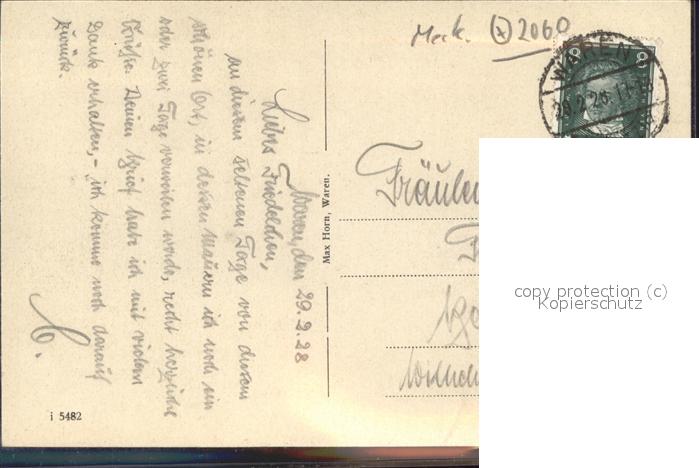 Meck. 2060
WAREN
29.2.28. 11-12
8 8
Waren, den 29.2.28
Liebes Friedelchen,
an diesem seltenen Tage von diesem
schönen Ort, in dessen Mauern ich noch ein
oder zwei Tage verweilen werde, recht herzliche
Grüße. Deinen Brief habe ich mit vielem
Dank erhalten, – ich komme noch darauf
zurück.
Max Horn, Waren.
i 5482
copy protection (c)
Kopierschutz